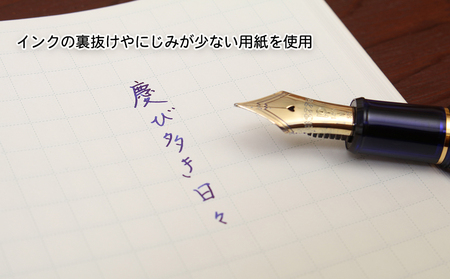 インクの裏抜けやにじみが少ない用紙を使用
慶び多き日々